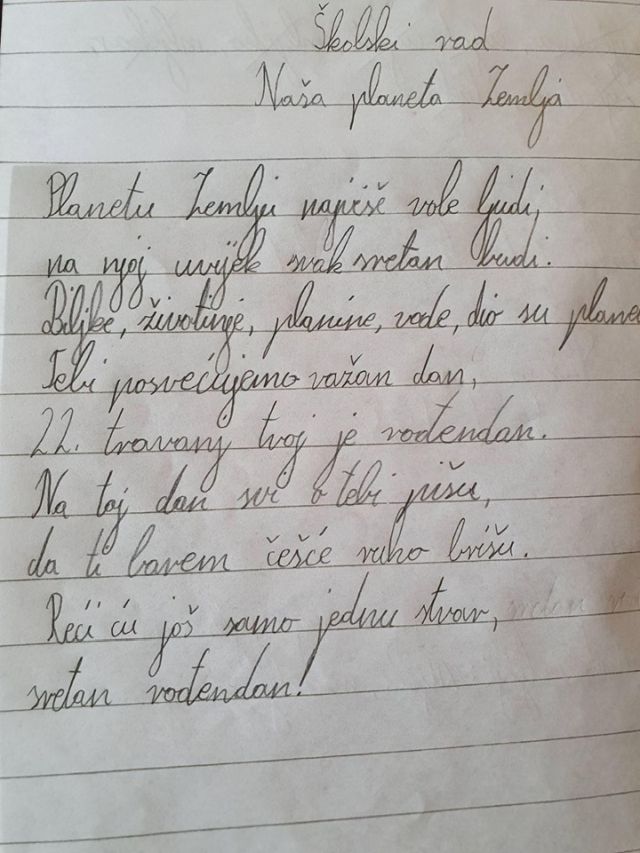 Školski rad
Naša planeta Zemlja
Planetu Zemlju najviše vole ljudi,
na njoj uvijek svak sretan budi.
Biljke, životinje, planine, vode, dio su
Tebi posvećujemo važan dan,
22. travanj tvoj je rođendan.
Na taj dan svi o tebi pišu,
da ti barem češće ruho brišu.
Reći ću još samo jednu stvar,
sretan rođendan!